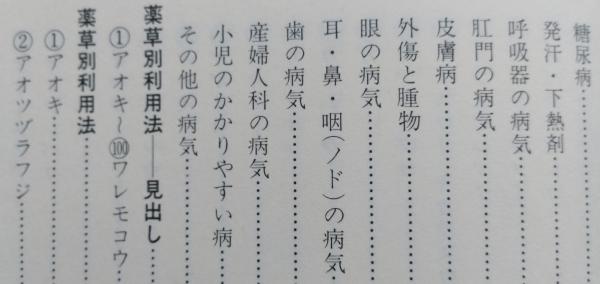 糖尿病……
発汗・下熱剤……
呼吸器の病気……
肛門の病気……
皮膚病……
外傷と腫物……
眼の病気……
耳・鼻・咽(ノド)の病気……
歯の病気……
産婦人科の病気……
小児のかかりやすい病……
その他の病気……
薬草別利用法——見出し……
①アオキ〜⑩⓪ワレモコウ……
薬草別利用法……
①アオキ……
②アオツヅラフジ……